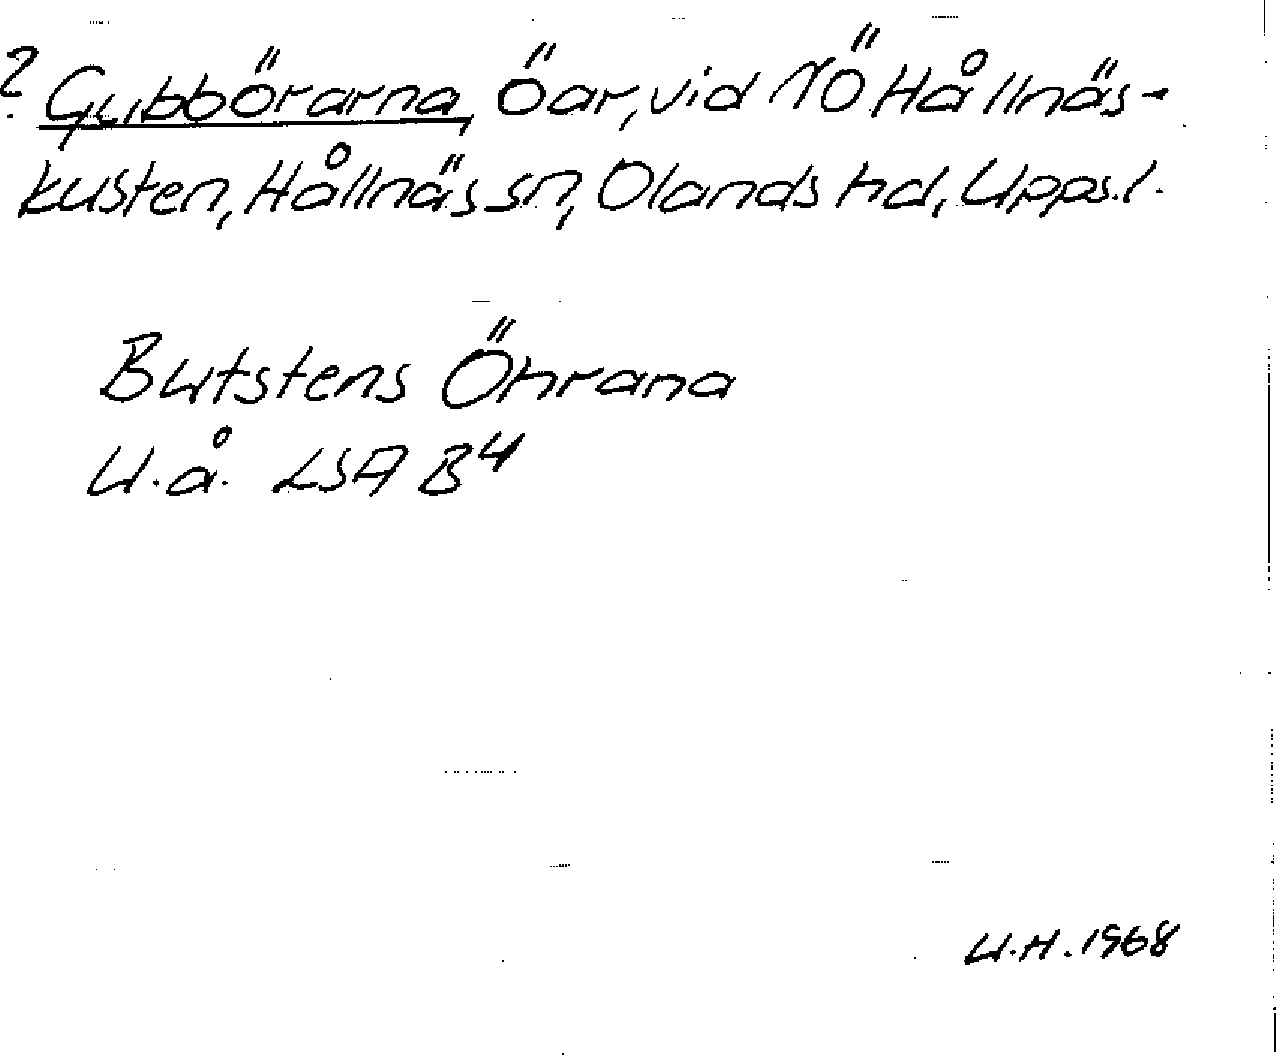 ? Gubbörarna, Öar, vid NÖ Hållnäs-
kusten, Hållnäs sn, Olands hd, Upps.l.
Butstens Öhrana
U.å. LSA B4
U.H. 1968